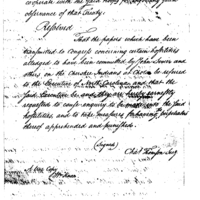 co operate with the said troops for enforcing your
observance of that Treaty.
Resolved
That the papers which have been
transmitted to Congress concerning certain hostilities
alledged to have been committed by John Sevier and
others on the Cherokee Indians at Chota be referred
to the Executive of North Carolina, and that the
said Executive be and they are hereby earnestly
requested to cause enquiry to be made into the said
hostilities, and to take measures for having perpetrators
thereof apprehended and punished.
(Signed)
Chas Thomson Secy
A true Copy